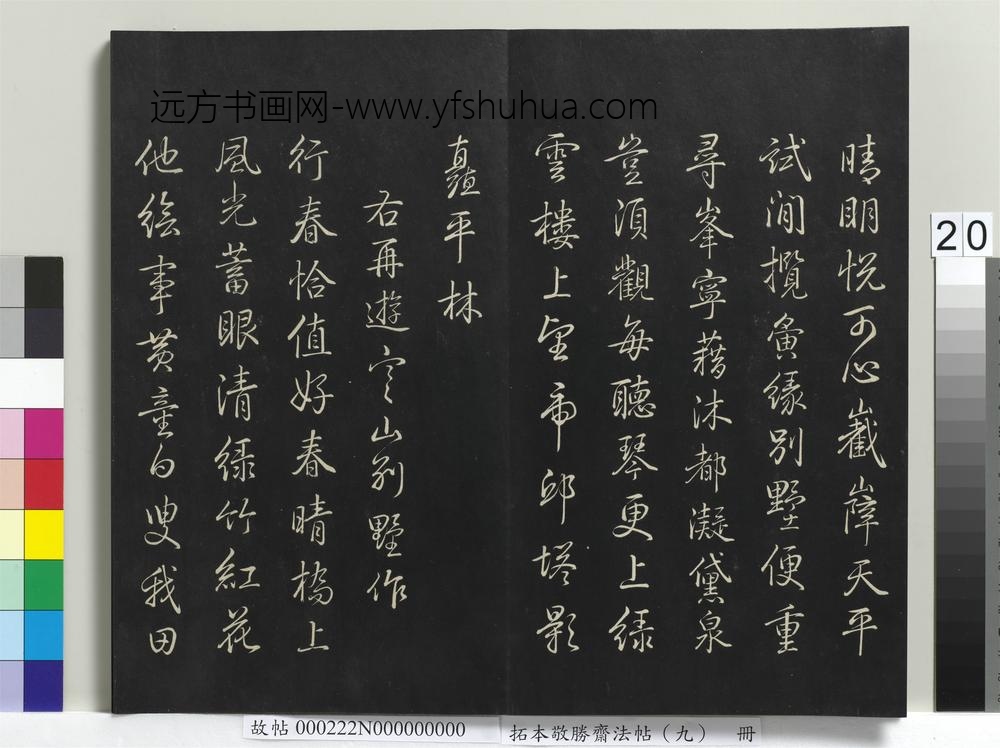 远方书画网-www.yfshuhua.com
晴明悦可心巀嶭天平
試澗攬夤緣別墅便重
尋峯寧藉沐都凝黛泉
豈須觀每聽琴更上綠
雲樓上望帝邱塔影
矗平林
右再遊寒山別墅作
行春恰值好春晴橋上
風光蓄眼清綠竹紅花
他繪事黄童白叟我田
20
故帖 000222N000000000
拓本敬勝齋法帖（九） 冊